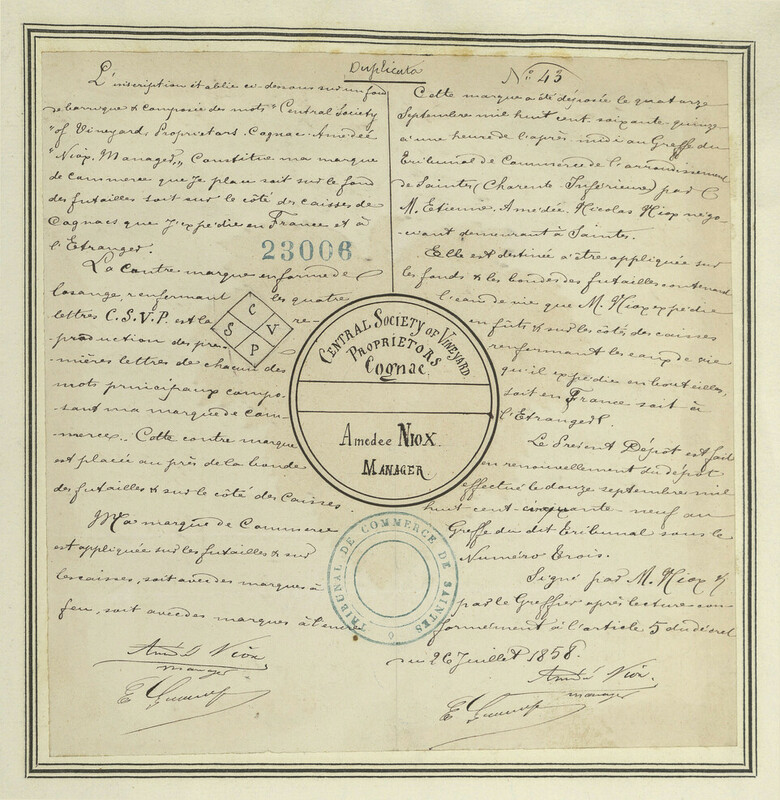 Duplicata
L'inscription établie ci-dessous sur un fond
de barrique & composée des mots "Central Society
"of Vineyard, Proprietors. Cognac. Amedée
"Niox. Manager,, Constitue ma marque
de commerce que je place soit sur le fond
des futailles soit sur le côté des caisses de
Cognacs que j'expédie en France et à
l'Etranger.
23006
La contre marque en forme de
losange, renfermant les quatre
lettres C.S.V.P. est la re-
production des pre-
mières lettres de chacun des
mots principaux compo-
sant ma marque de com-
merce. Cette contre marque
est placée au près de la bonde
des futailles & sur le côté des Caisses.
Ma marque de Commerce
est appliquée sur les futailles & sur
les caisses, soit avec des marques à
feu, soit avec des marques à l'encre
Amdé Niox
manager
C
S V
P
CENTRAL SOCIETY OF VINEYARD
PROPRIETORS
Cognac
Amedee NIOX
MANAGER
TRIBUNAL DE COMMERCE DE SAINTES
No. 43
Cette marque a été déposée le quatorze
Septembre mil huit cent soixante-quinze
à une heure de l'après-midi au Greffe du
Tribunal de Commerce de l'arrondissement
de Saintes (Charente Inférieure) par
M. Etienne Amédée Nicolas Niox négo-
ciant demeurant à Saintes.
Elle est destinée à être appliquée sur
les fonds & les bondes des futailles contenant
l'eau de vie que M. Niox expédie
en fûts & sur les côtés des caisses
renfermant les eaux de vie
qu'il expédie en bouteilles,
soit en France soit à
l'Etranger.
Le Présent Dépôt est fait
en renouvellement du dépôt
effectué le douze septembre mil
huit cent cinquante-neuf au
Greffe du dit Tribunal sous le
Numéro Trois.
Signé par M. Niox &
par le Greffier après lecture con-
formément à l'article 5 du décret
du 26 Juillet 1858.
Amdé Niox
manager